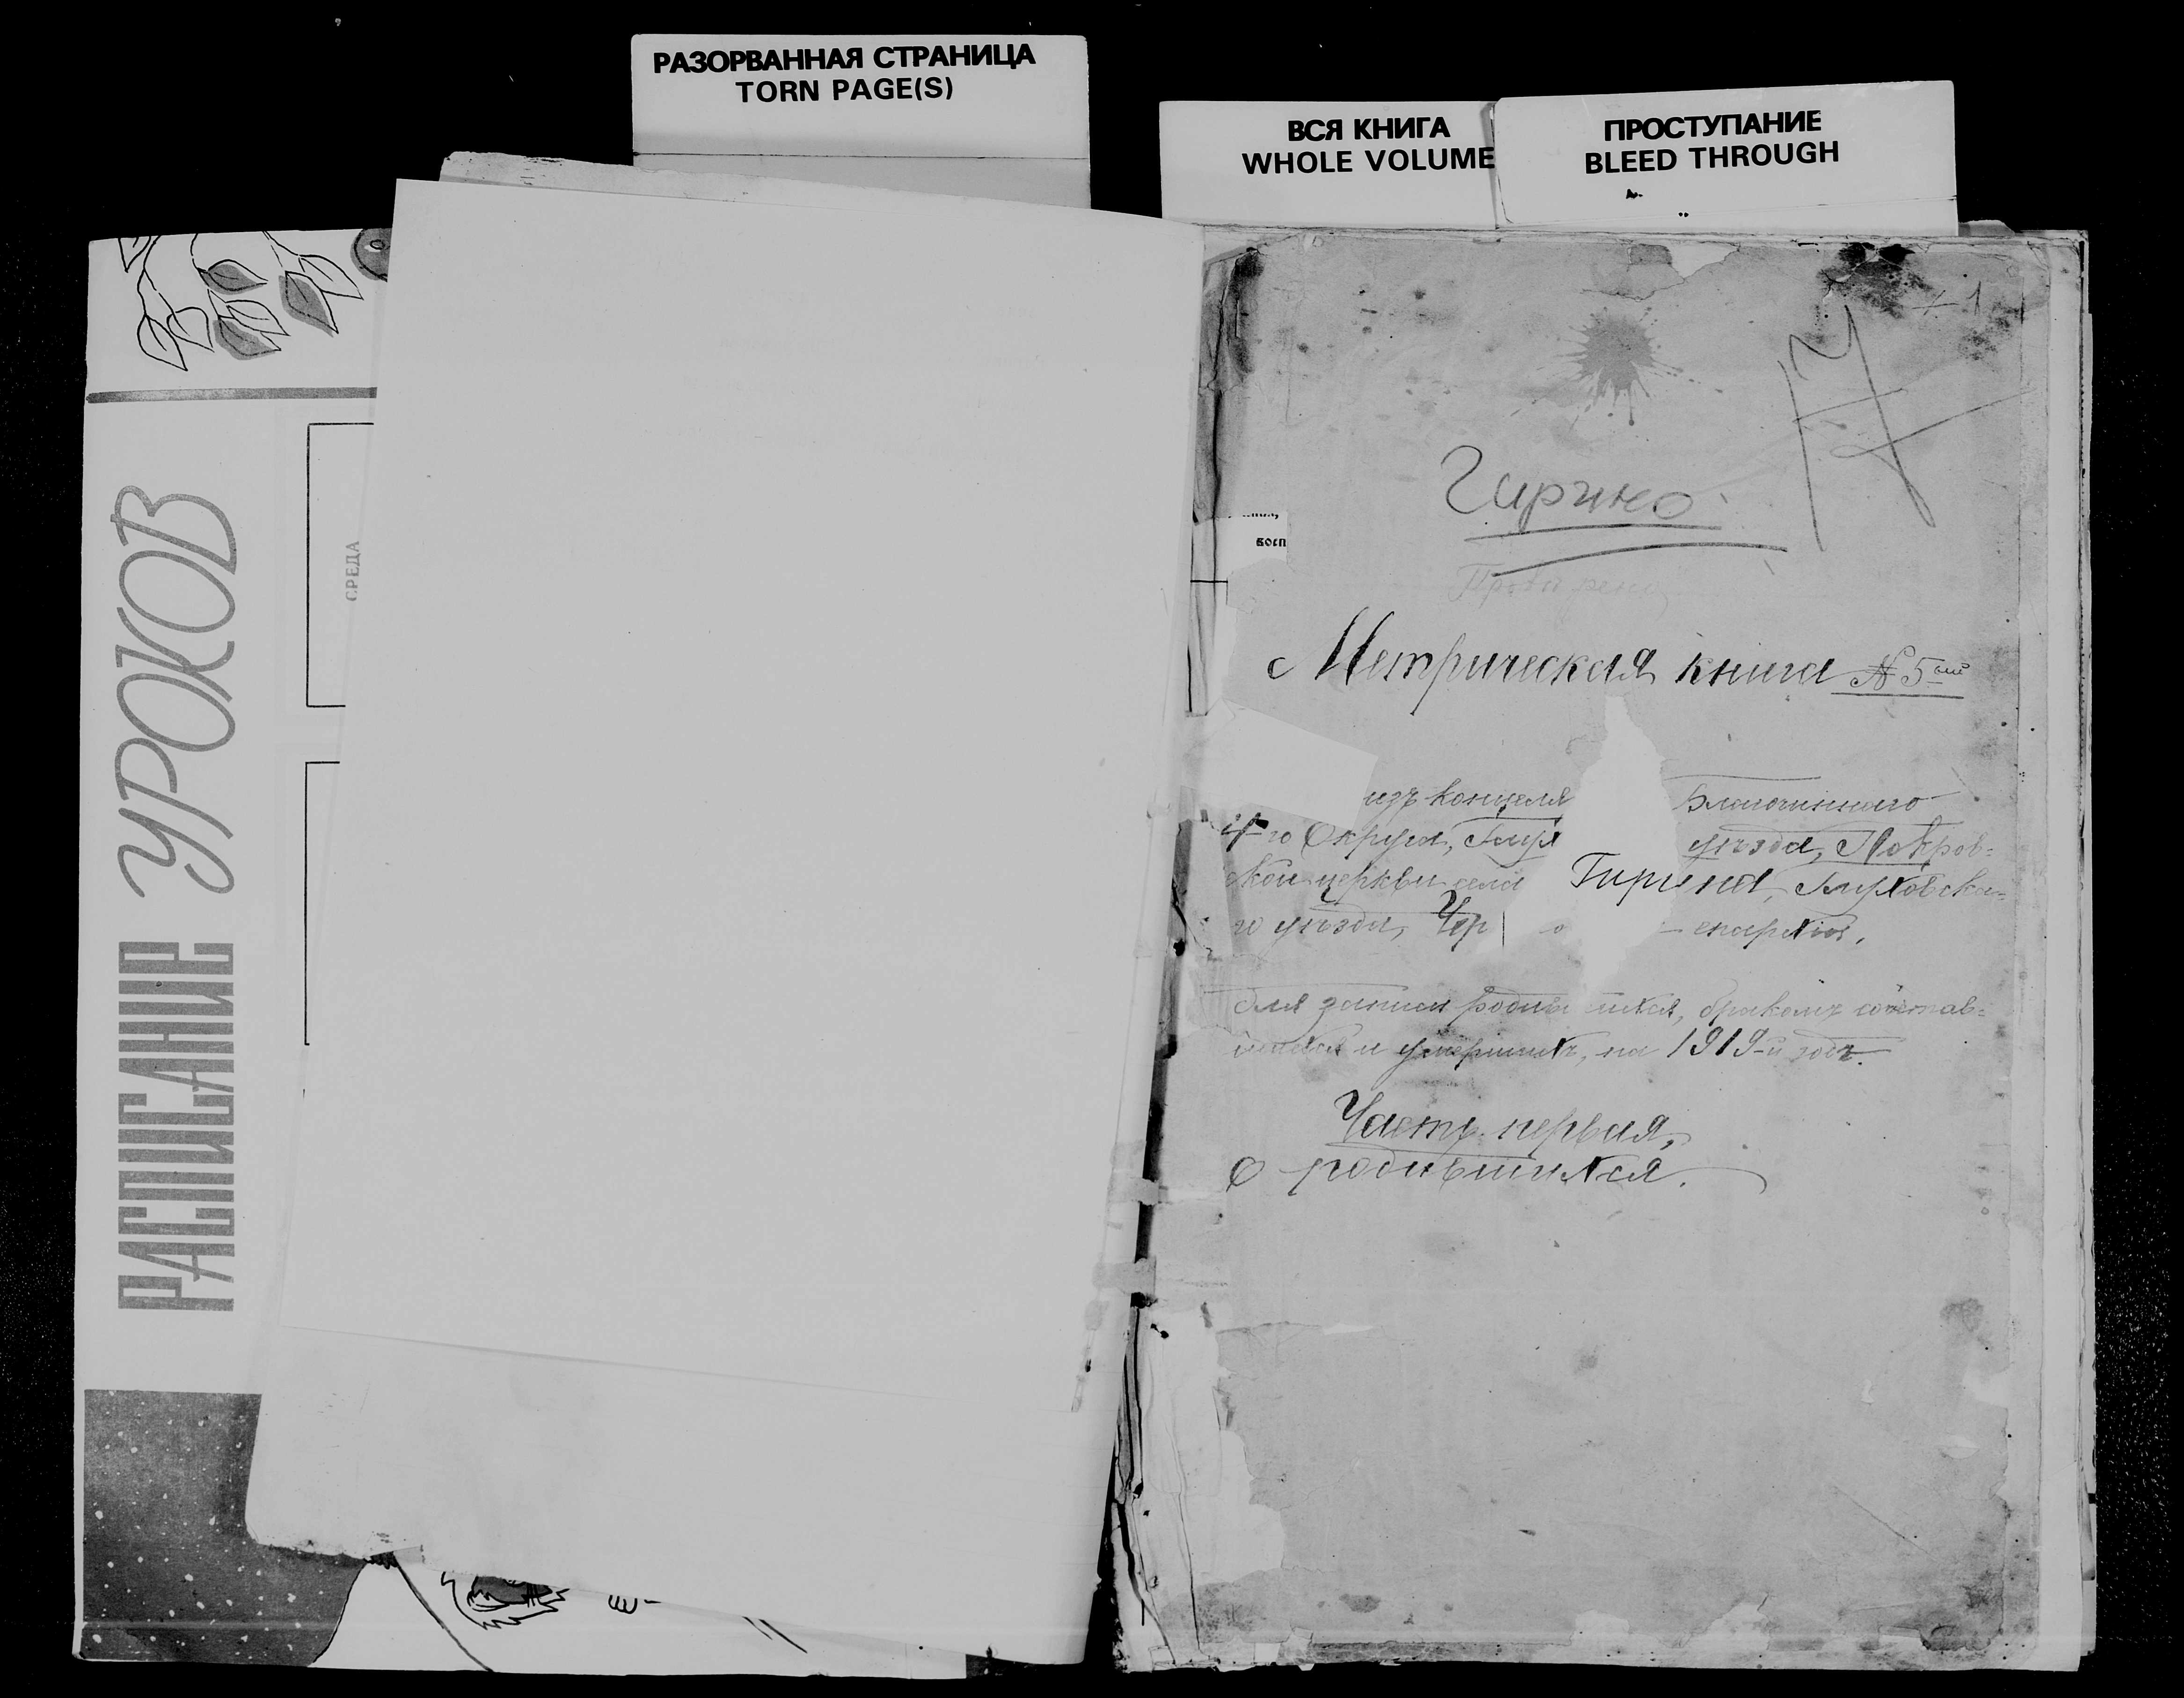 РАЗОРВАННАЯ СТРАНИЦА
TORN PAGE(S)
ВСЯ КНИГА
WHOLE VOLUME
ПРОСТУПАНИЕ
BLEED THROUGH
РАСПИСАНИЕ УРОКОВ
СРЕДА
1
Гирино
Метрическая книга № 5ый
изъ канцеля Благочиннаго
4-го Округа, Глух уѣзда, Покров-
ской церкви села Гирина, Глуховска-
го уѣзда, Чер о епархіи,
для записи роди шихся, бракомъ сочетав-
шихся и умершихъ, на 1919-й годъ.
Часть первая,
О родившихся.